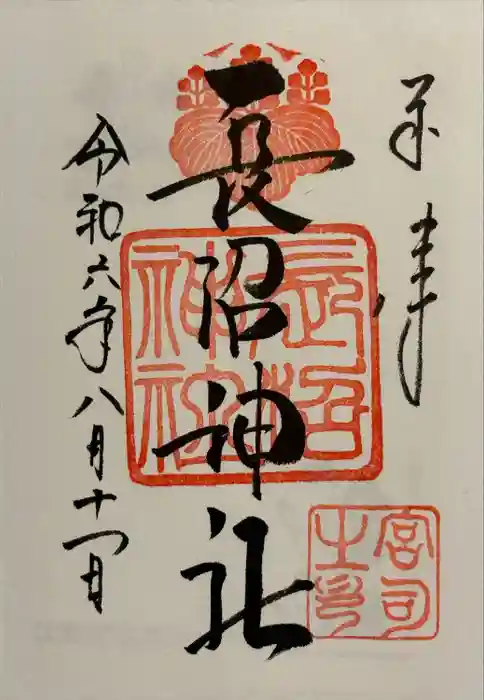 奉拝
長沼神社
長沼神社
宮司之印
令和六年八月十一日